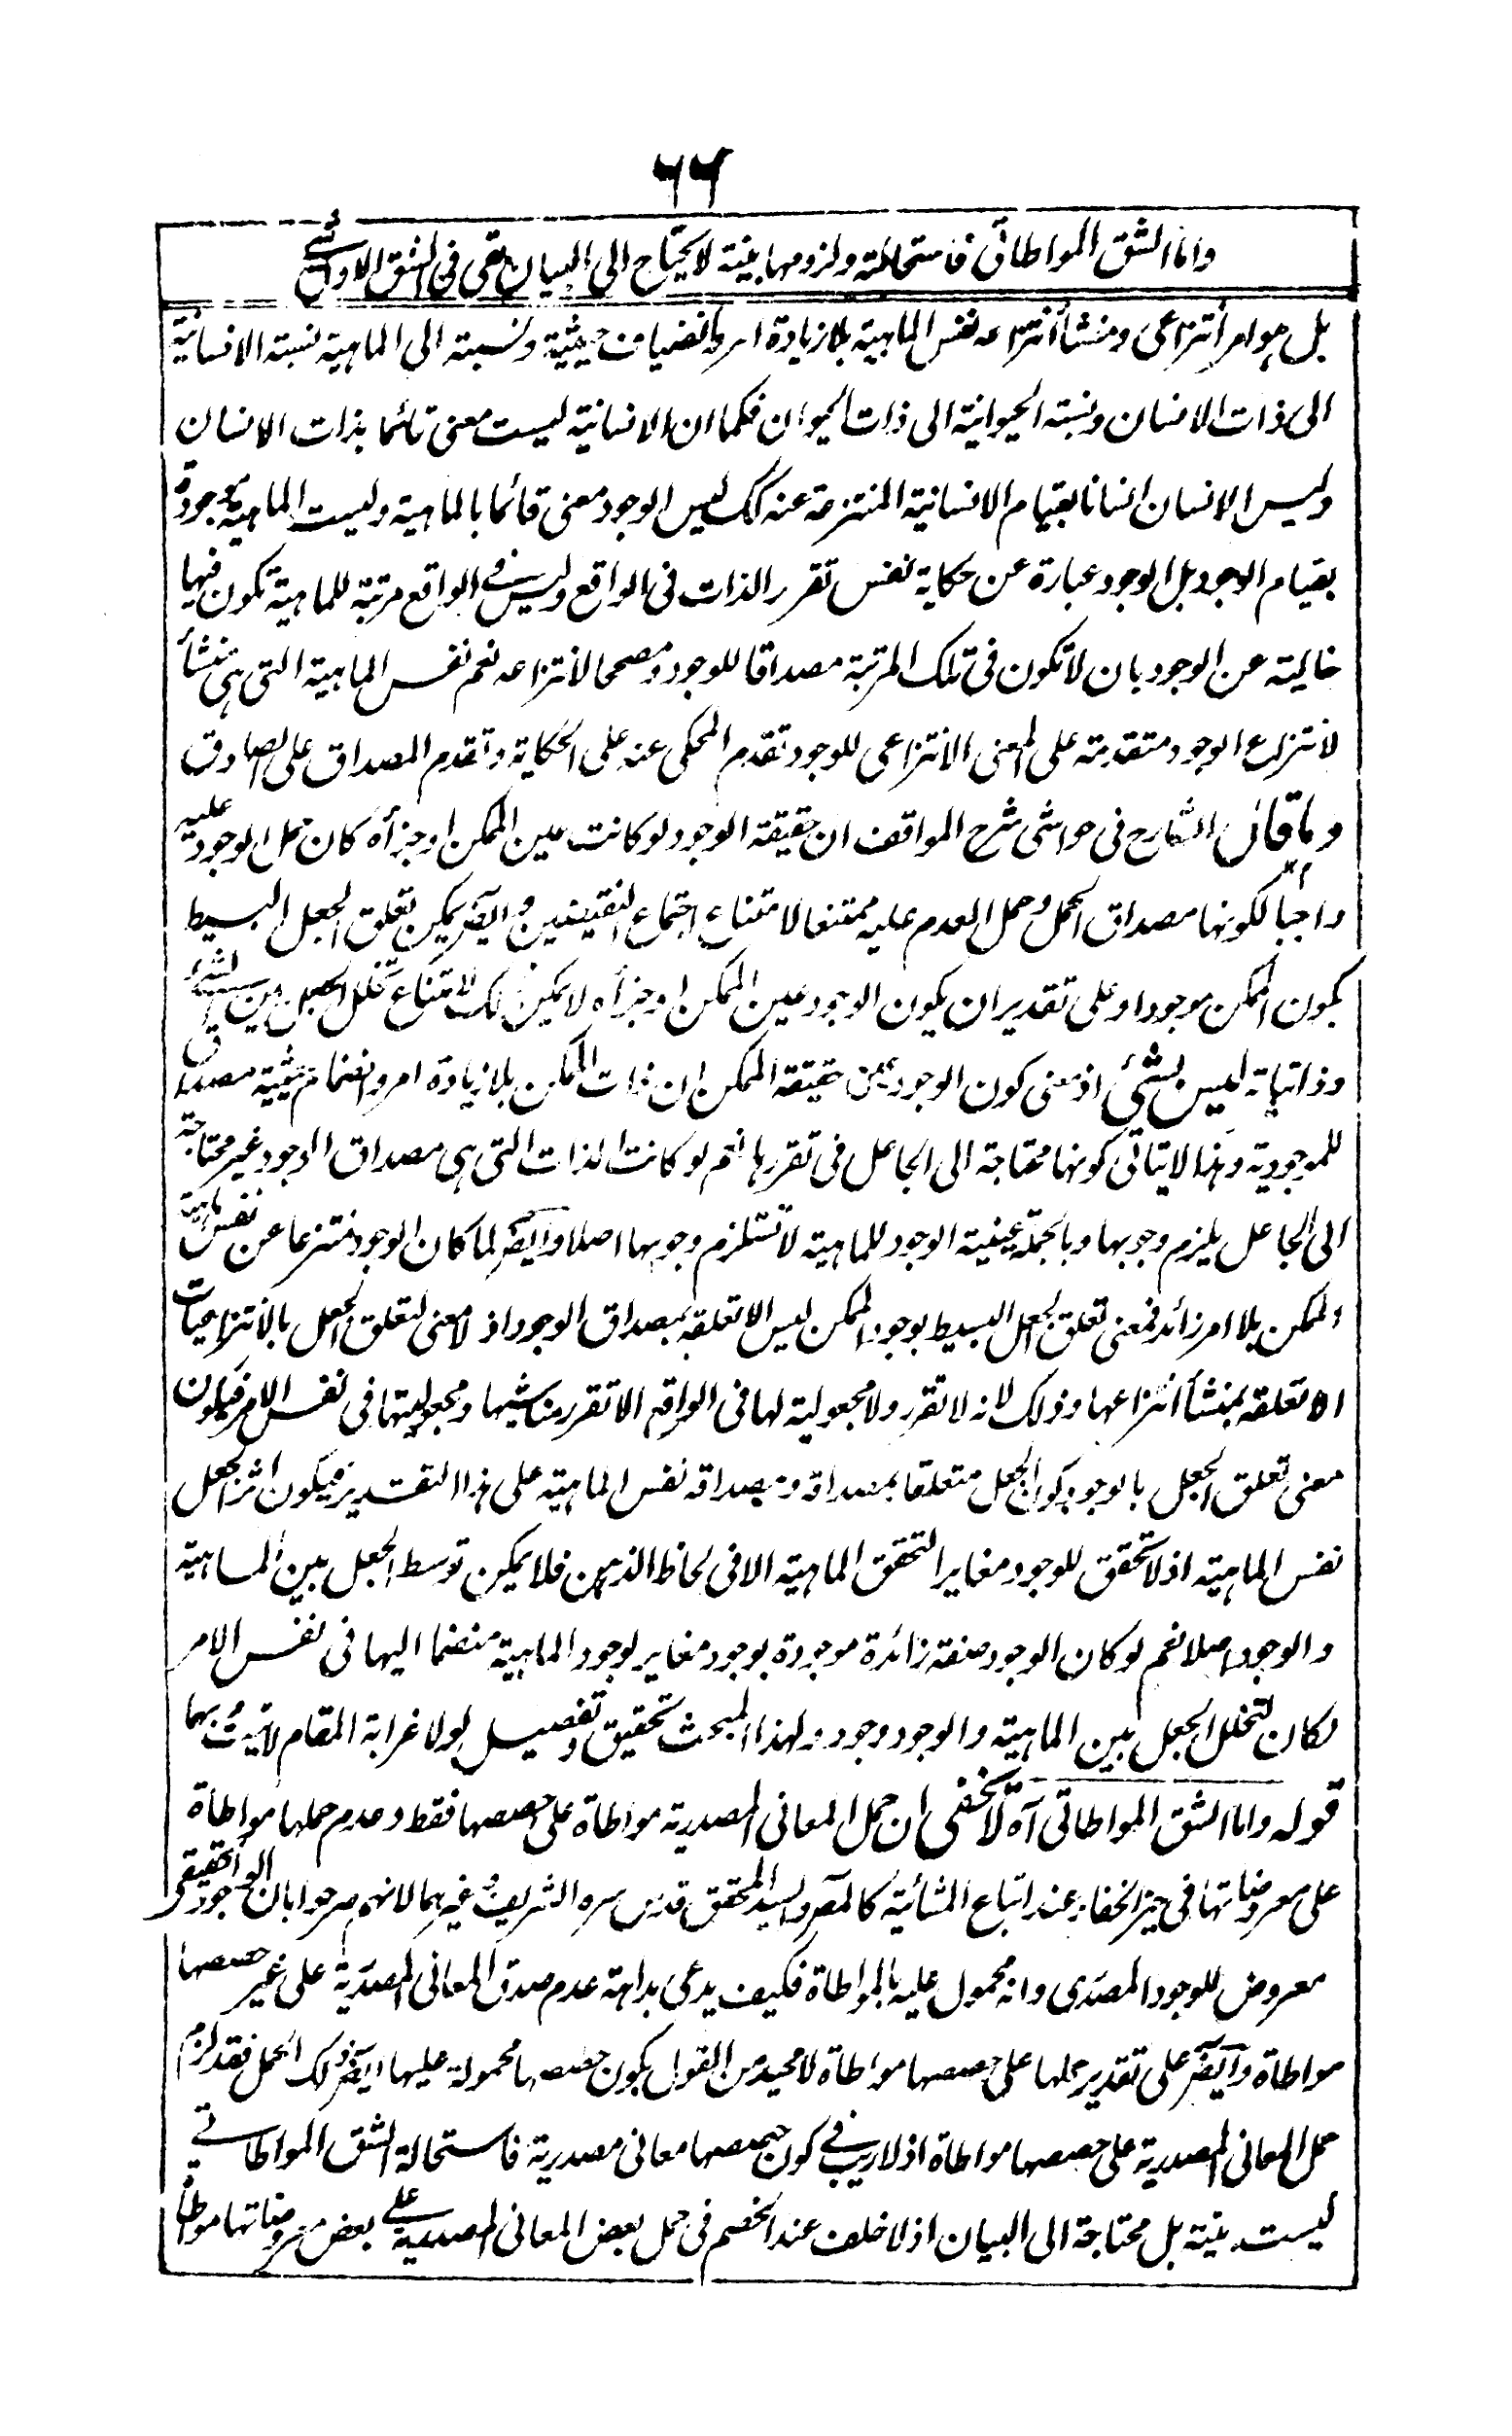 ٦٦
واما الشق المواطاتى فاستحالته ولزومها بينة لا يحتاج الى البيان بقى فى الشق الاول شئ
بل هو امر انتزاعى ومنشأ انتزاعه نفس الماهية بلا زيادة امر وانضياف حيثية ونسبته الى الماهية نسبة الانسانية
الى ذات الانسان ونسبة الحيوانية الى ذات الحيوان فكما ان الانسانية ليست معنى قائما بذات الانسان
وليس الانسان انسانا بقيام الانسانية المنتزعة عنه كك ليس الوجود معنى قائما بالماهية وليست الماهية موجودة
بقيام الوجود بل الوجود عبارة عن حكاية نفس تقرر الذات فى الواقع وليس فى الواقع مرتبة للماهية تكون فيها
خالية عن الوجود بان لا تكون فى تلك المرتبة مصداقا للوجود ومصححا لانتزاعه نعم نفس الماهية التى هى منشأ
لانتزاع الوجود متقدمة على المعنى الانتزاعى للوجود تقدم المحكى عنه على الحكاية وتقدم المصداق على الصادق
وما قال الشارح فى حواشى شرح المواقف ان حقيقة الوجود لو كانت عين الممكن او جزأه كان حمل الوجود عليه
واجبا لكونها مصداق الحمل وحمل العدم عليه ممتنعا لامتناع اجتماع النقيضين وايضا يمكن تعلق الجعل البسيط
بكون الممكن موجودا وعلى تقدير ان يكون الوجود عين الممكن او جزأه لا يمكن ذلك لامتناع تخلل الجعل بين الشئ
وذاتياته ليس بشئ اذ معنى كون الوجود عين حقيقة الممكن ان ذات الممكن بلا زيادة امر وانضمام حيثية مصداق
للموجودية وهذا لا ينافى كونها محتاجة الى الجاعل فى تقررها نعم لو كانت الذات التى هى مصداق الوجود غير محتاجة
الى الجاعل يلزم وجوبها وبالجملة عينية الوجود للماهية لا تستلزم وجوبها اصلا وايضا لما كان الوجود منتزعا عن نفس ماهية
الممكن بلا امر زائد فمعنى تعلق الجعل البسيط بوجود الممكن ليس الا تعلقه بمصداق الوجود اذ لا معنى لتعلق الجعل بالانتزاعيات
الا تعلقه بمنشأ انتزاعها وذلك لانه لا تقرر ولا مجعولية لها فى الواقع الا تقرر مناشيها ومجعوليتها فى نفس الامر فيكون
معنى تعلق الجعل بالوجود كون الجعل متعلقا بمصداقه ومصداقه نفس الماهية على هذا التقدير فيكون اثر الجعل
نفس الماهية اذ لا تحقق للوجود مغايرا لتحقق الماهية الا فى لحاظ الذهن فلا يمكن توسط الجعل بين الماهية
والوجود اصلا نعم لو كان الوجود صفة زائدة موجودة بوجود مغاير لوجود الماهية منضما اليها فى نفس الامر
لكان لتخلل الجعل بين الماهية والوجود وجود ولهذا المبحث تحقيق وتفصيل لولا غرابة المقام لاتيت بهما
قوله واما الشق المواطاتى آه لا يخفى ان حمل المعانى المصدرية مواطاة على حصصها فقط وعدم حملها مواطاة
على معروضاتها فى حيز الخفاء عند اتباع المشائية كالمص والسيد المحقق قدس سره الشريف وغيرهما لانهم صرحوا بان الوجود الحقيقى
معروض للوجود المصدرى وانه محمول عليه بالمواطاة فكيف يدعى بداهة عدم صدق المعانى المصدرية على غير حصصها
مواطاة وايضا على تقدير حملها على حصصها مواطاة لا محيد من القول بكون حصصها محمولة عليها ايضا ذلك الحمل فقد لزم
حمل المعانى المصدرية على حصصها مواطاة اذ لا ريب فى كون حصصها معانى مصدرية فاستحالة الشق المواطاتى
ليست بينة بل محتاجة الى البيان اذ لا خلف عند الخصم فى حمل بعض المعانى المصدرية على بعض معروضاتها مواطاة